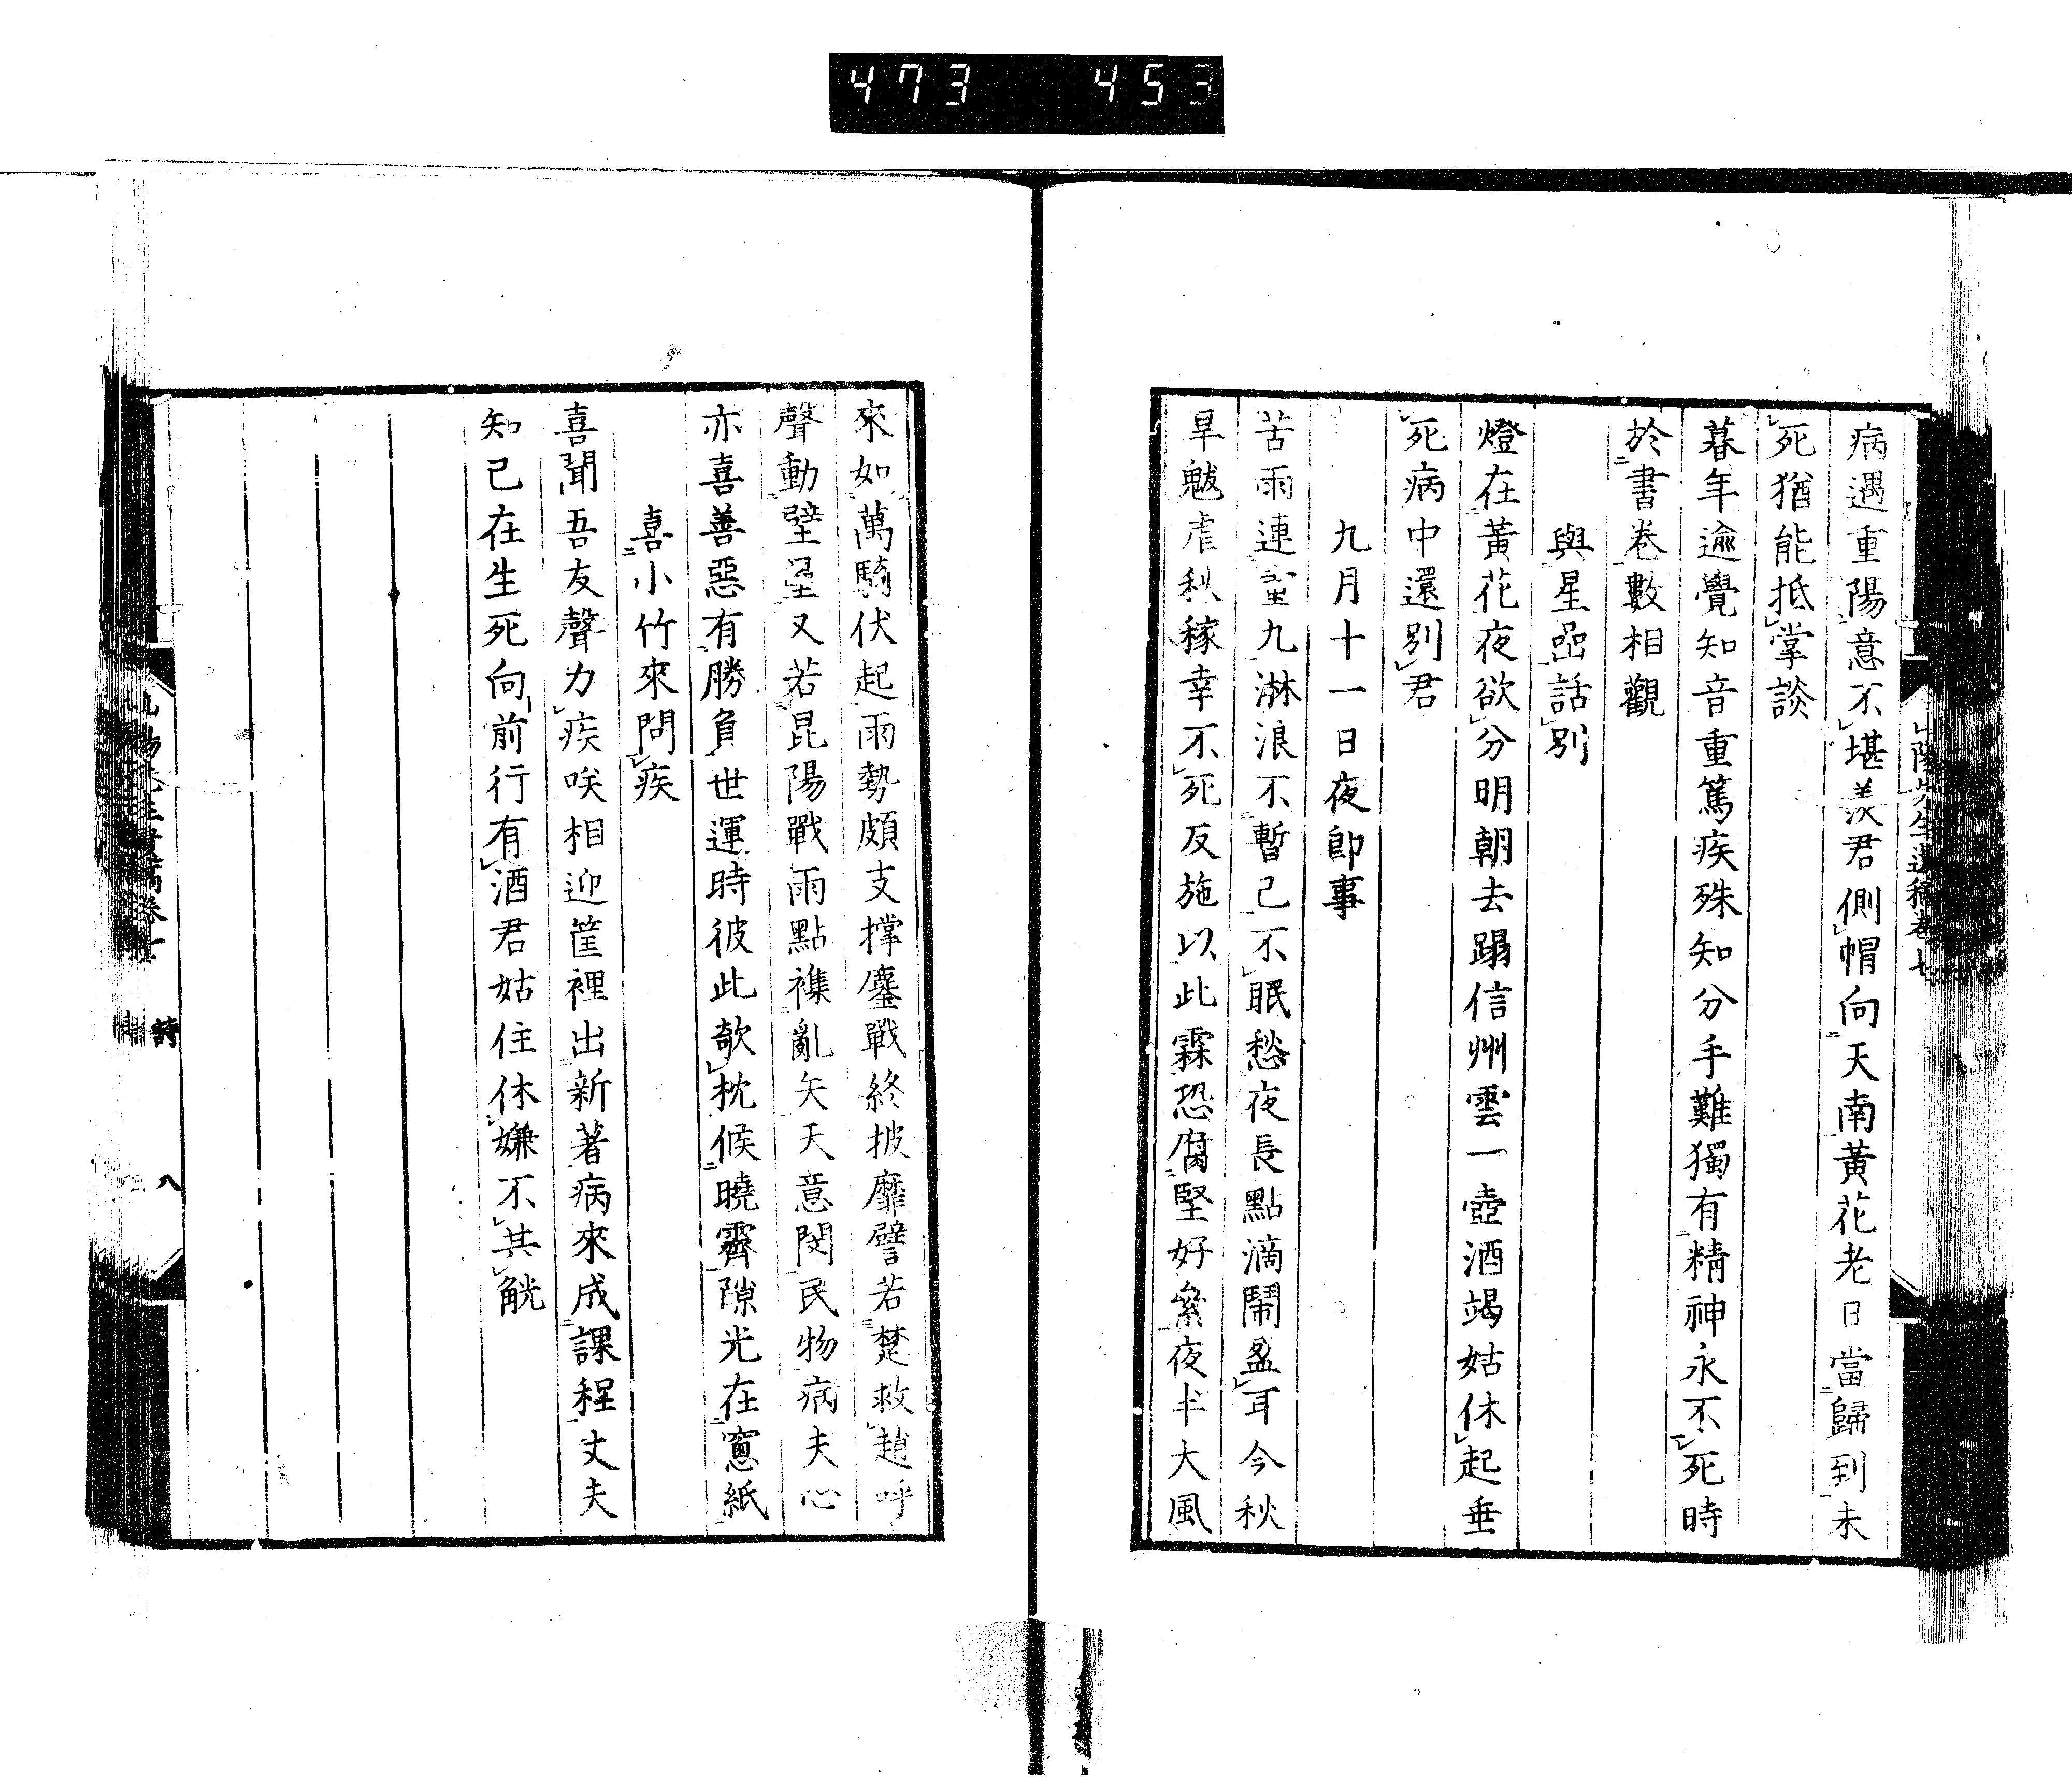 473 453
山陽先生遺稿卷七
病遇重陽意不堪羨君側帽向天南黃花老日當歸到未
死猶能抵掌談
暮年逾覺知音重篤疾殊知分手難獨有精神永不死時
於書卷數相觀
與星巫話別
燈在黃花夜欲分明朝去蹋信州雲一壺酒竭姑休起垂
死病中還別君
九月十一日夜卽事
苦雨連宵九淋浪不暫已不眠愁夜長點滴鬧盈耳今秋
旱魃虐秋稼幸不死反施以此霖恐腐堅好絫夜半大風
來如萬騎伏起雨勢頗支撐鏖戰終披靡譬若楚救趙呼
聲動壁壘又若昆陽戰雨點襍亂矢天意閔民物病夫心
亦喜善惡有勝負世運時彼此欹枕候曉霽隙光在窻紙
喜小竹來問疾
喜聞吾友聲力疾咲相迎筐裡出新著病來成課程丈夫
知己在生死向前行有酒君姑住休嫌不其觥
詩
八